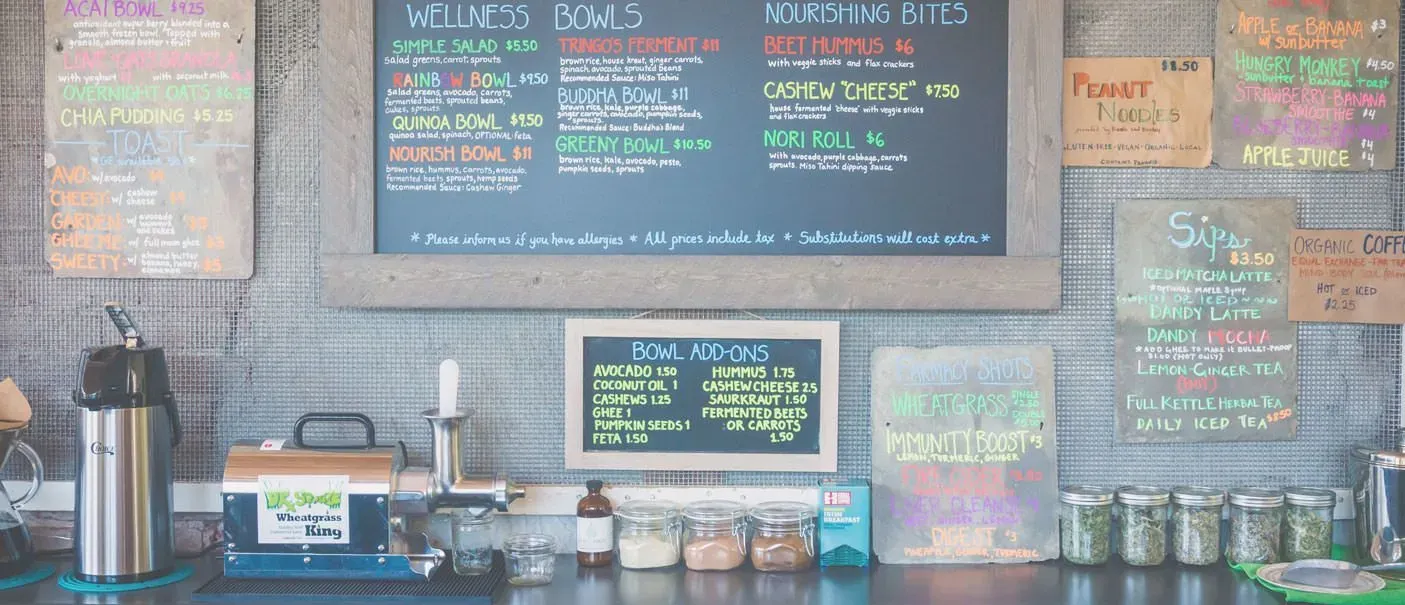 ACAI BOWL $9.25
antioxidant super berry blended into a
smooth frozen bowl. Topped with
granola, almond butter + fruit
with yoghurt with coconut milk
OVERNIGHT OATS $6.25
CHIA PUDDING $5.25
TOAST
AVO: w/ avocado
CHEESY: w/ cashew
cheese
GARDEN: w/ avocado
hummus
and cukes
GHEE ME: w/ full moon ghee $3
SWEETY: w/ almond butter
banana, honey,
cinnamon $5
WELLNESS BOWLS
SIMPLE SALAD $5.50
salad greens, carrot, sprouts
RAINBOW BOWL $9.50
salad greens, avocado, carrots,
fermented beets, sprouted beans,
cukes, sprouts
QUINOA BOWL $9.50
quinoa salad, spinach, OPTIONAL: feta
NOURISH BOWL $11
brown rice, hummus, carrots, avocado,
fermented beets, sprouts, hemp seeds
Recommended Sauce: Cashew Ginger
TRINGO'S FERMENT $11
brown rice, house kraut, ginger carrots,
spinach, avocado, sprouted beans
Recommended Sauce: Miso Tahini
BUDDHA BOWL $11
brown rice, kale, purple cabbage,
ginger carrots, avocado, pumpkin seeds,
sprouts
Recommended Sauce: Buddha's Blend
GREENY BOWL $10.50
brown rice, kale, avocado, pesto,
pumpkin seeds, sprouts
NOURISHING BITES
BEET HUMMUS $6
with veggie sticks and flax crackers
CASHEW "CHEESE" $7.50
house fermented 'cheese' with veggie sticks
and flax crackers
NORI ROLL $6
with avocado, purple cabbage, carrots
sprouts. Miso Tahini dipping sauce
* Please inform us if you have allergies * All prices include tax * Substitutions will cost extra *
BOWL ADD-ONS
AVOCADO 1.50
COCONUT OIL 1
CASHEWS 1.25
GHEE 1
PUMPKIN SEEDS 1
FETA 1.50
HUMMUS 1.75
CASHEW CHEESE 2.5
SAURKRAUT 1.50
FERMENTED BEETS
OR CARROTS
1.50
$8.50
PEANUT
NOODLES
GLUTEN-FREE-VEGAN-ORGANIC-LOCAL
CONTAINS PEANUTS
APPLE OR BANANA $3
w/ sunbutter
HUNGRY MONKEY $4.50
-sunbutter + banana toast
STRAWBERRY-BANANA
SMOOTHIE $4
$4
APPLE JUICE $4
Sips
$3.50
ICED MATCHA LATTE
*OPTIONAL MAPLE SYRUP
HOT OR ICED
DANDY LATTE
DANDY MOCHA
*ADD GHEE TO MAKE IT BULLET-PROOF
$1.00 (HOT ONLY)
LEMON-GINGER TEA
(HOT)
FULL KETTLE HERBAL TEA
DAILY ICED TEA $2.50
ORGANIC COFF
EQUAL EXCHANGE-FAIR TRA
MIND BODY SOUL
HOT or ICED
$2.25
FARMACY SHOTS
WHEATGRASS SINGLE
DOUBLE
IMMUNITY BOOST $3
LEMON, TURMERIC, GINGER
FIRE CIDER
LIVER CLEANSE
DIGEST $3
PINEAPPLE, GINGER, TURMERIC
Wheatgrass
King